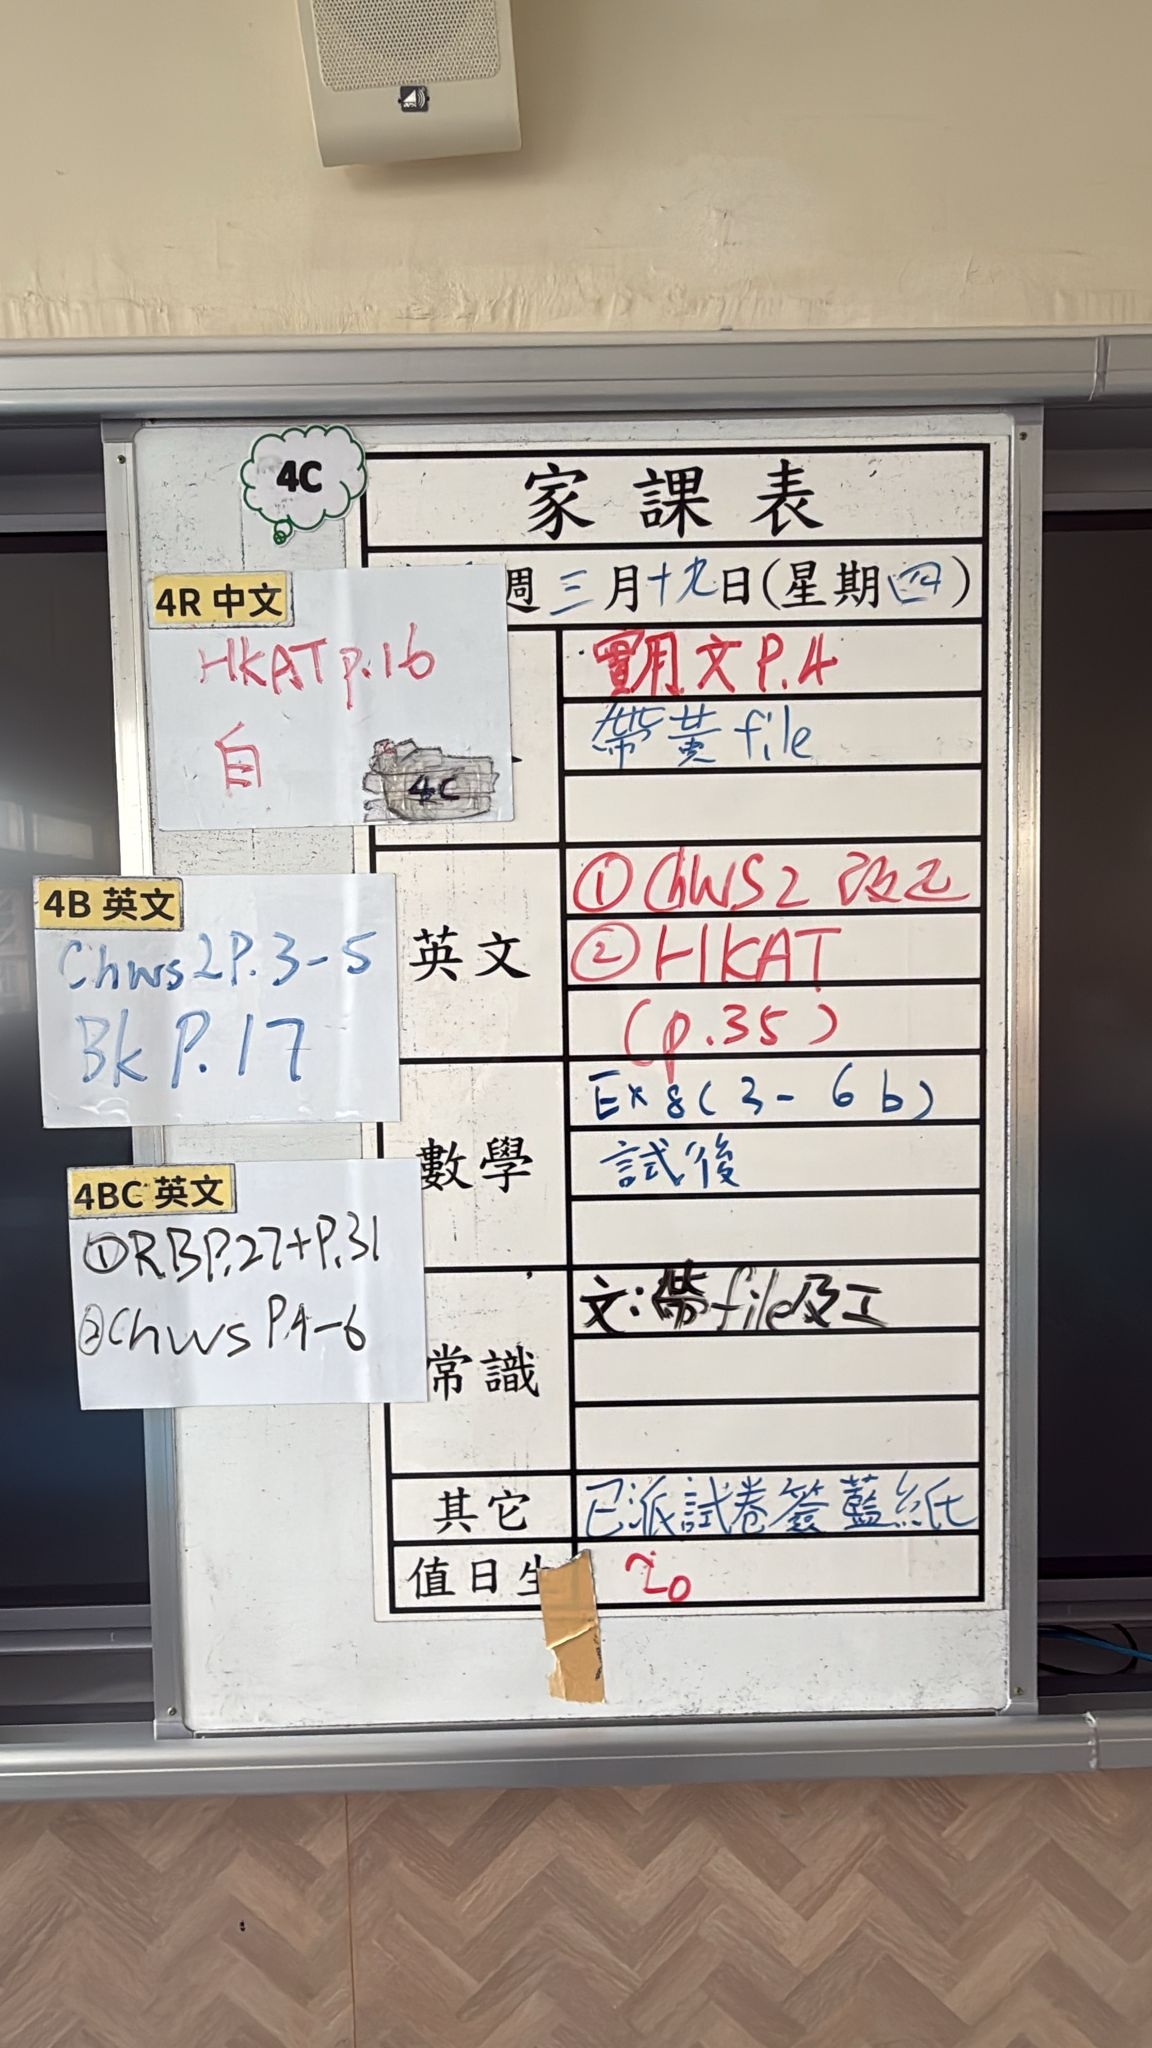 4C
家課表
週三月十九日(星期四)
4R 中文
HKAT p.16
自
4C
實用文 P.4
帶黃file
4B 英文
Chws2 P.3-5
Bk P.17
英文
① ChWS2 改正
② HKAT
(p.35)
4BC 英文
① RB P.27+P.31
② Chws P.4-6
數學
Ex 8(3-6b)
試後
常識
文:帶file及工
其它
已派試卷簽藍紙
值日生
20